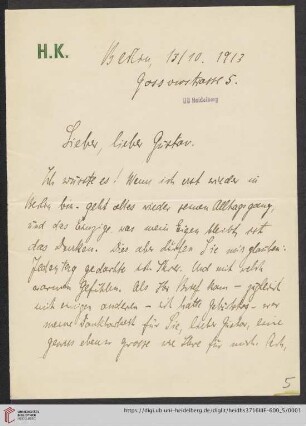 H.K.
Berlin, 13/10. 1913
Gossowstrasse 5.
UB Heidelberg
Lieber, lieber Gustav.
Ich wusste es! Wenn ich erst wieder in
Berlin bin - geht alles wieder seinen Alltagsgang,
und das Einzige was mein Eigen bleibt ist
das Denken. Das aber dürfen Sie mir glauben:
Jeden Tag gedachte ich Ihrer. Und mit solch
warmen Gefühlen. Als Ihr Brief kam -
mit einigen anderen - ich hatte - war
meine Dankbarkeit für Sie, lieber Gustav, eine
genau ebenso grosse wie Ihre für mich. Ach,
5
https://digi.ub.uni-heidelberg.de/diglit/heidhs3716IIIE-600_5/0001